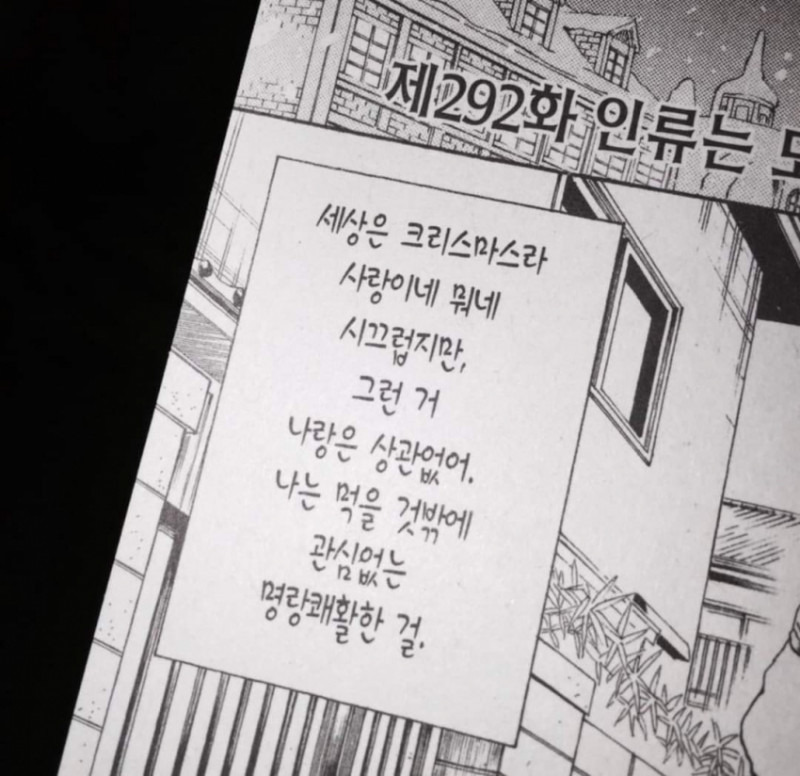 제292화 인류는
세상은 크리스마스라
사랑이네 뭐네
시끄럽지만,
그런 거
나랑은 상관없어.
나는 먹을 것밖에
관심없는
명랑쾌활한 걸.